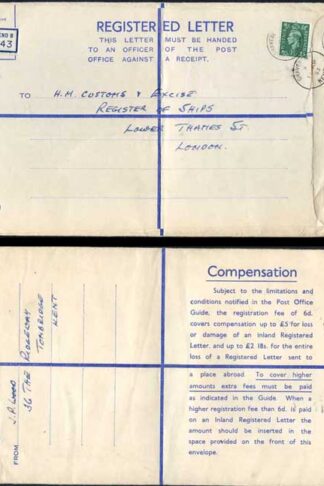 END B
43
REGISTERED LETTER
THIS LETTER MUST BE HANDED
TO AN OFFICER OF THE POST
OFFICE AGAINST A RECEIPT.
TO H.M. CUSTOMS & EXCISE
REGISTER OF SHIPS
LOWER THAMES ST.
LONDON.
FROM J.P. WOOD
36 THE RIDGEWAY
TONBRIDGE
KENT
Compensation
Subject to the limitations and
conditions notified in the Post Office
Guide, the registration fee of 6d.
covers compensation up to £5 for loss
or damage of an Inland Registered
Letter, and up to £2 18s. for the entire
loss of a Registered Letter sent to
a place abroad. To cover higher
amounts extra fees must be paid
as indicated in the Guide. When a
higher registration fee than 6d. is paid
on an Inland Registered Letter the
amount should be inserted in the
space provided on the front of this
envelope.